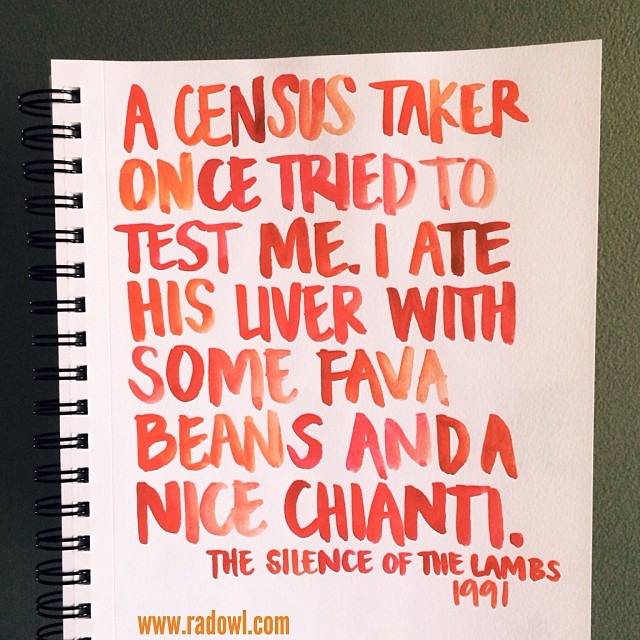 A CENSUS TAKER
ONCE TRIED TO
TEST ME. I ATE
HIS LIVER WITH
SOME FAVA
BEANS AND A
NICE CHIANTI.
THE SILENCE OF THE LAMBS
1991
www.radowl.com